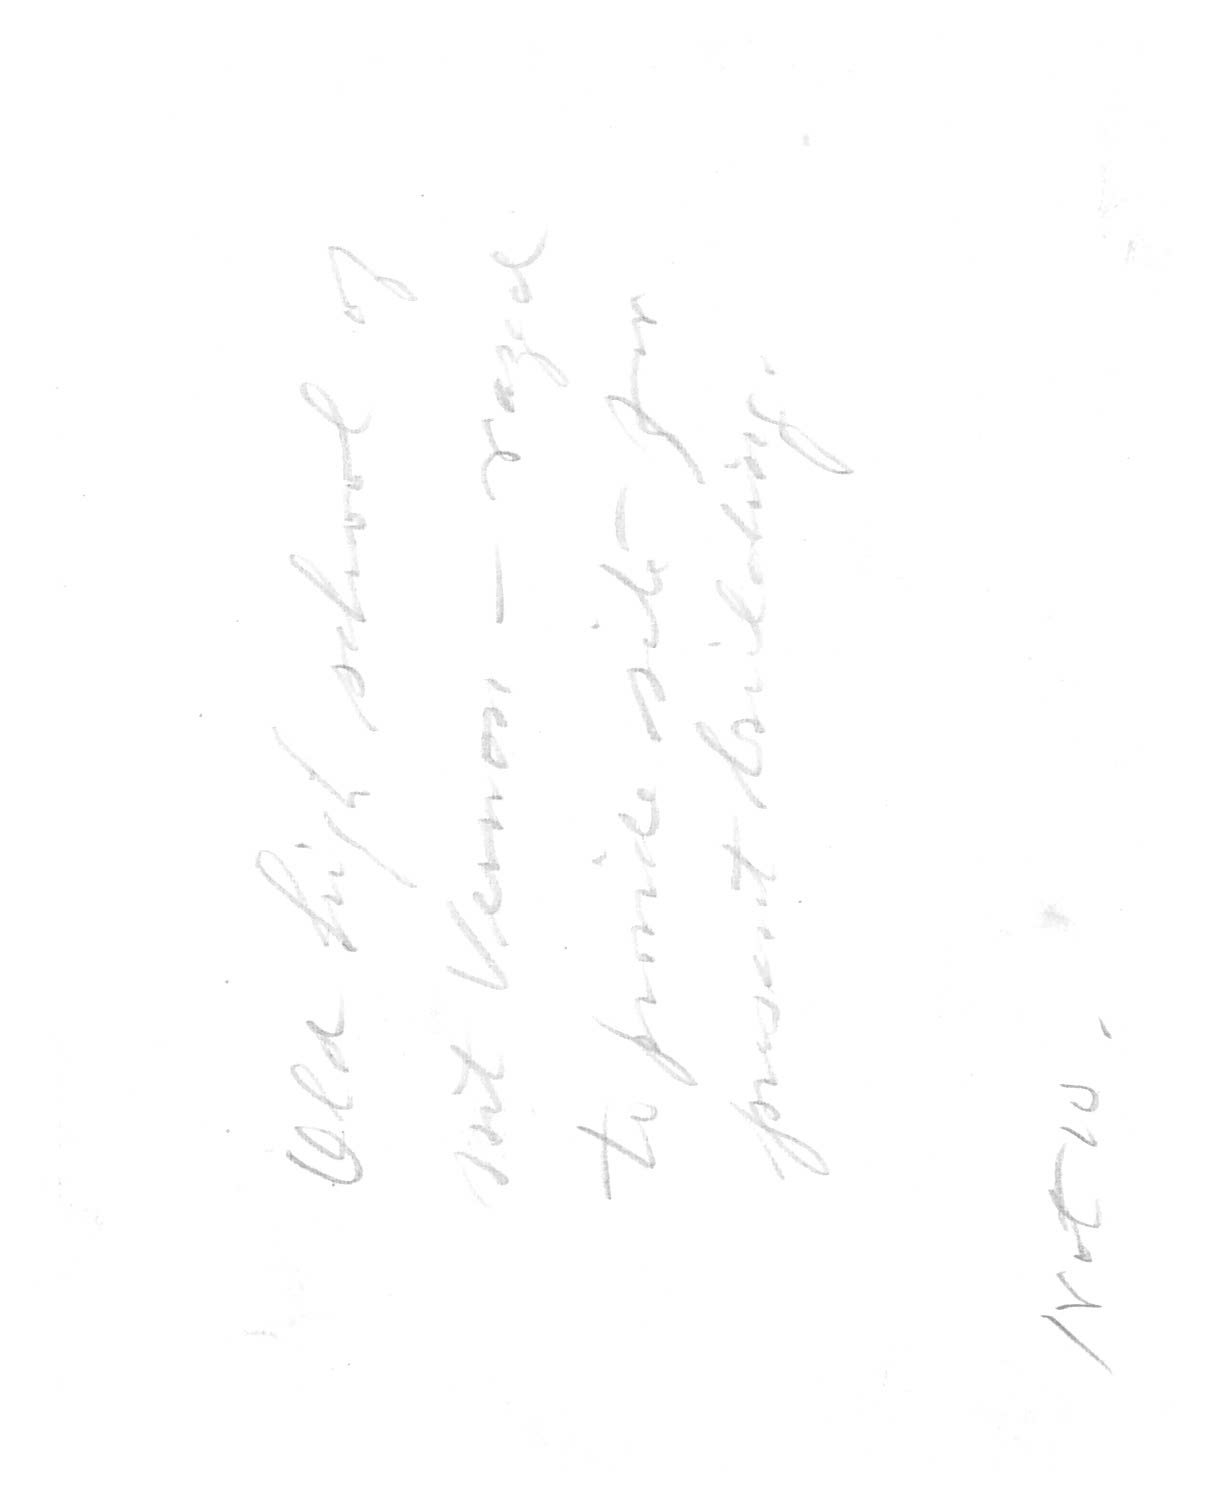 Old high school of
Mt Vernon — razed
to provide site — for
present building.
Not in.